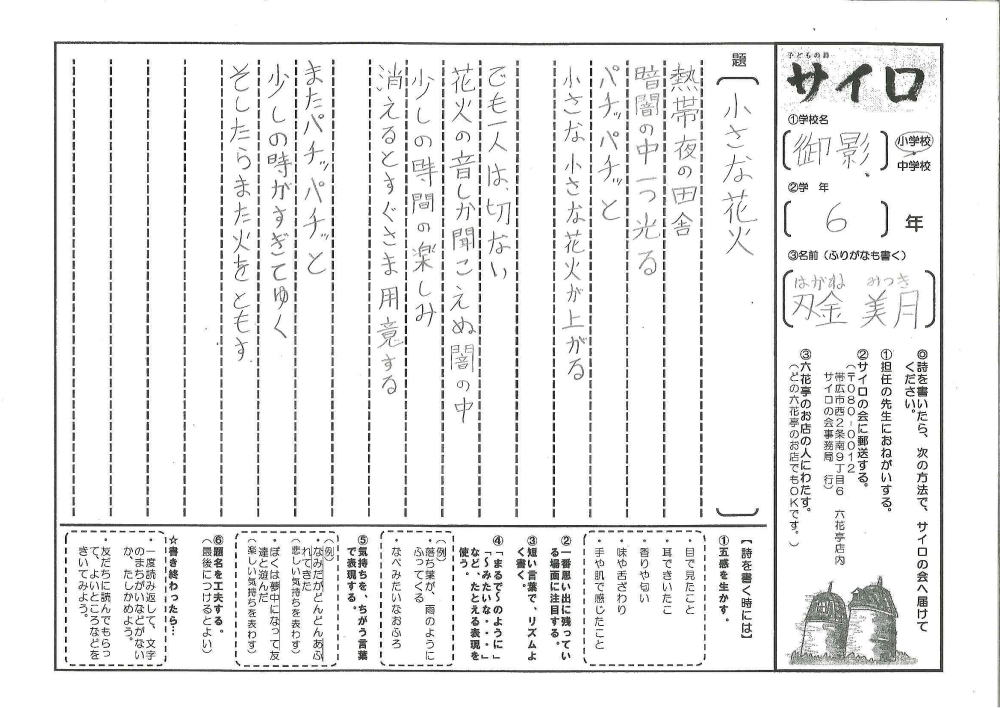 子どもの詩
サイロ
①学校名
御影
小学校
・
中学校
②学 年
6 年
③名前(ふりがなも書く)
はがね みつき
刃金 美月
◎詩を書いたら、次の方法で、サイロの会へ届けて
ください。
①担任の先生におねがいする。
②サイロの会に郵送する。
(〒080-0012
帯広市西2条南9丁目6 六花亭店内
サイロの会事務局 行)
③六花亭のお店の人にわたす。
(どの六花亭のお店でもOKです。)
題
小さな花火
熱帯夜の田舎
暗闇の中一つ光る
パチッパチッと
小さな小さな花火が上がる
でも一人は、切ない
花火の音しか聞こえぬ闇の中
少しの時間の楽しみ
消えるとすぐさま用意する
またパチッパチッと
少しの時がすぎてゆく
そしたらまた火をともす
【詩を書く時には】
①五感を生かす。
・目で見たこと
・耳できいたこ
・香りや匂い
・味や舌ざわり
・手や肌で感じたこと
②一番思い出に残ってい
る場面に注目する。
③短い言葉で、リズムよ
く書く。
④「まるで~のように」
「~みたいな・・・・」
など、たとえる表現を
使う。
(例)
・落ち葉が、雨のように
ふってくる
・なべみたいなおふろ
⑤気持ちを、ちがう言葉
で表現する。
(例)
・なみだがどんどんあふ
れてきた
(悲しい気持ちを表わす)
・ぼくは夢中になって友
達と遊んだ
(楽しい気持ちを表わす)
⑥題名を工夫する。
(最後につけるとよい)
☆書き終わったら…
・一度読み返して、文字
のまちがいなどがない
か、たしかめよう。
・友だちに読んでもらっ
て、よいところなどを
きいてみよう。